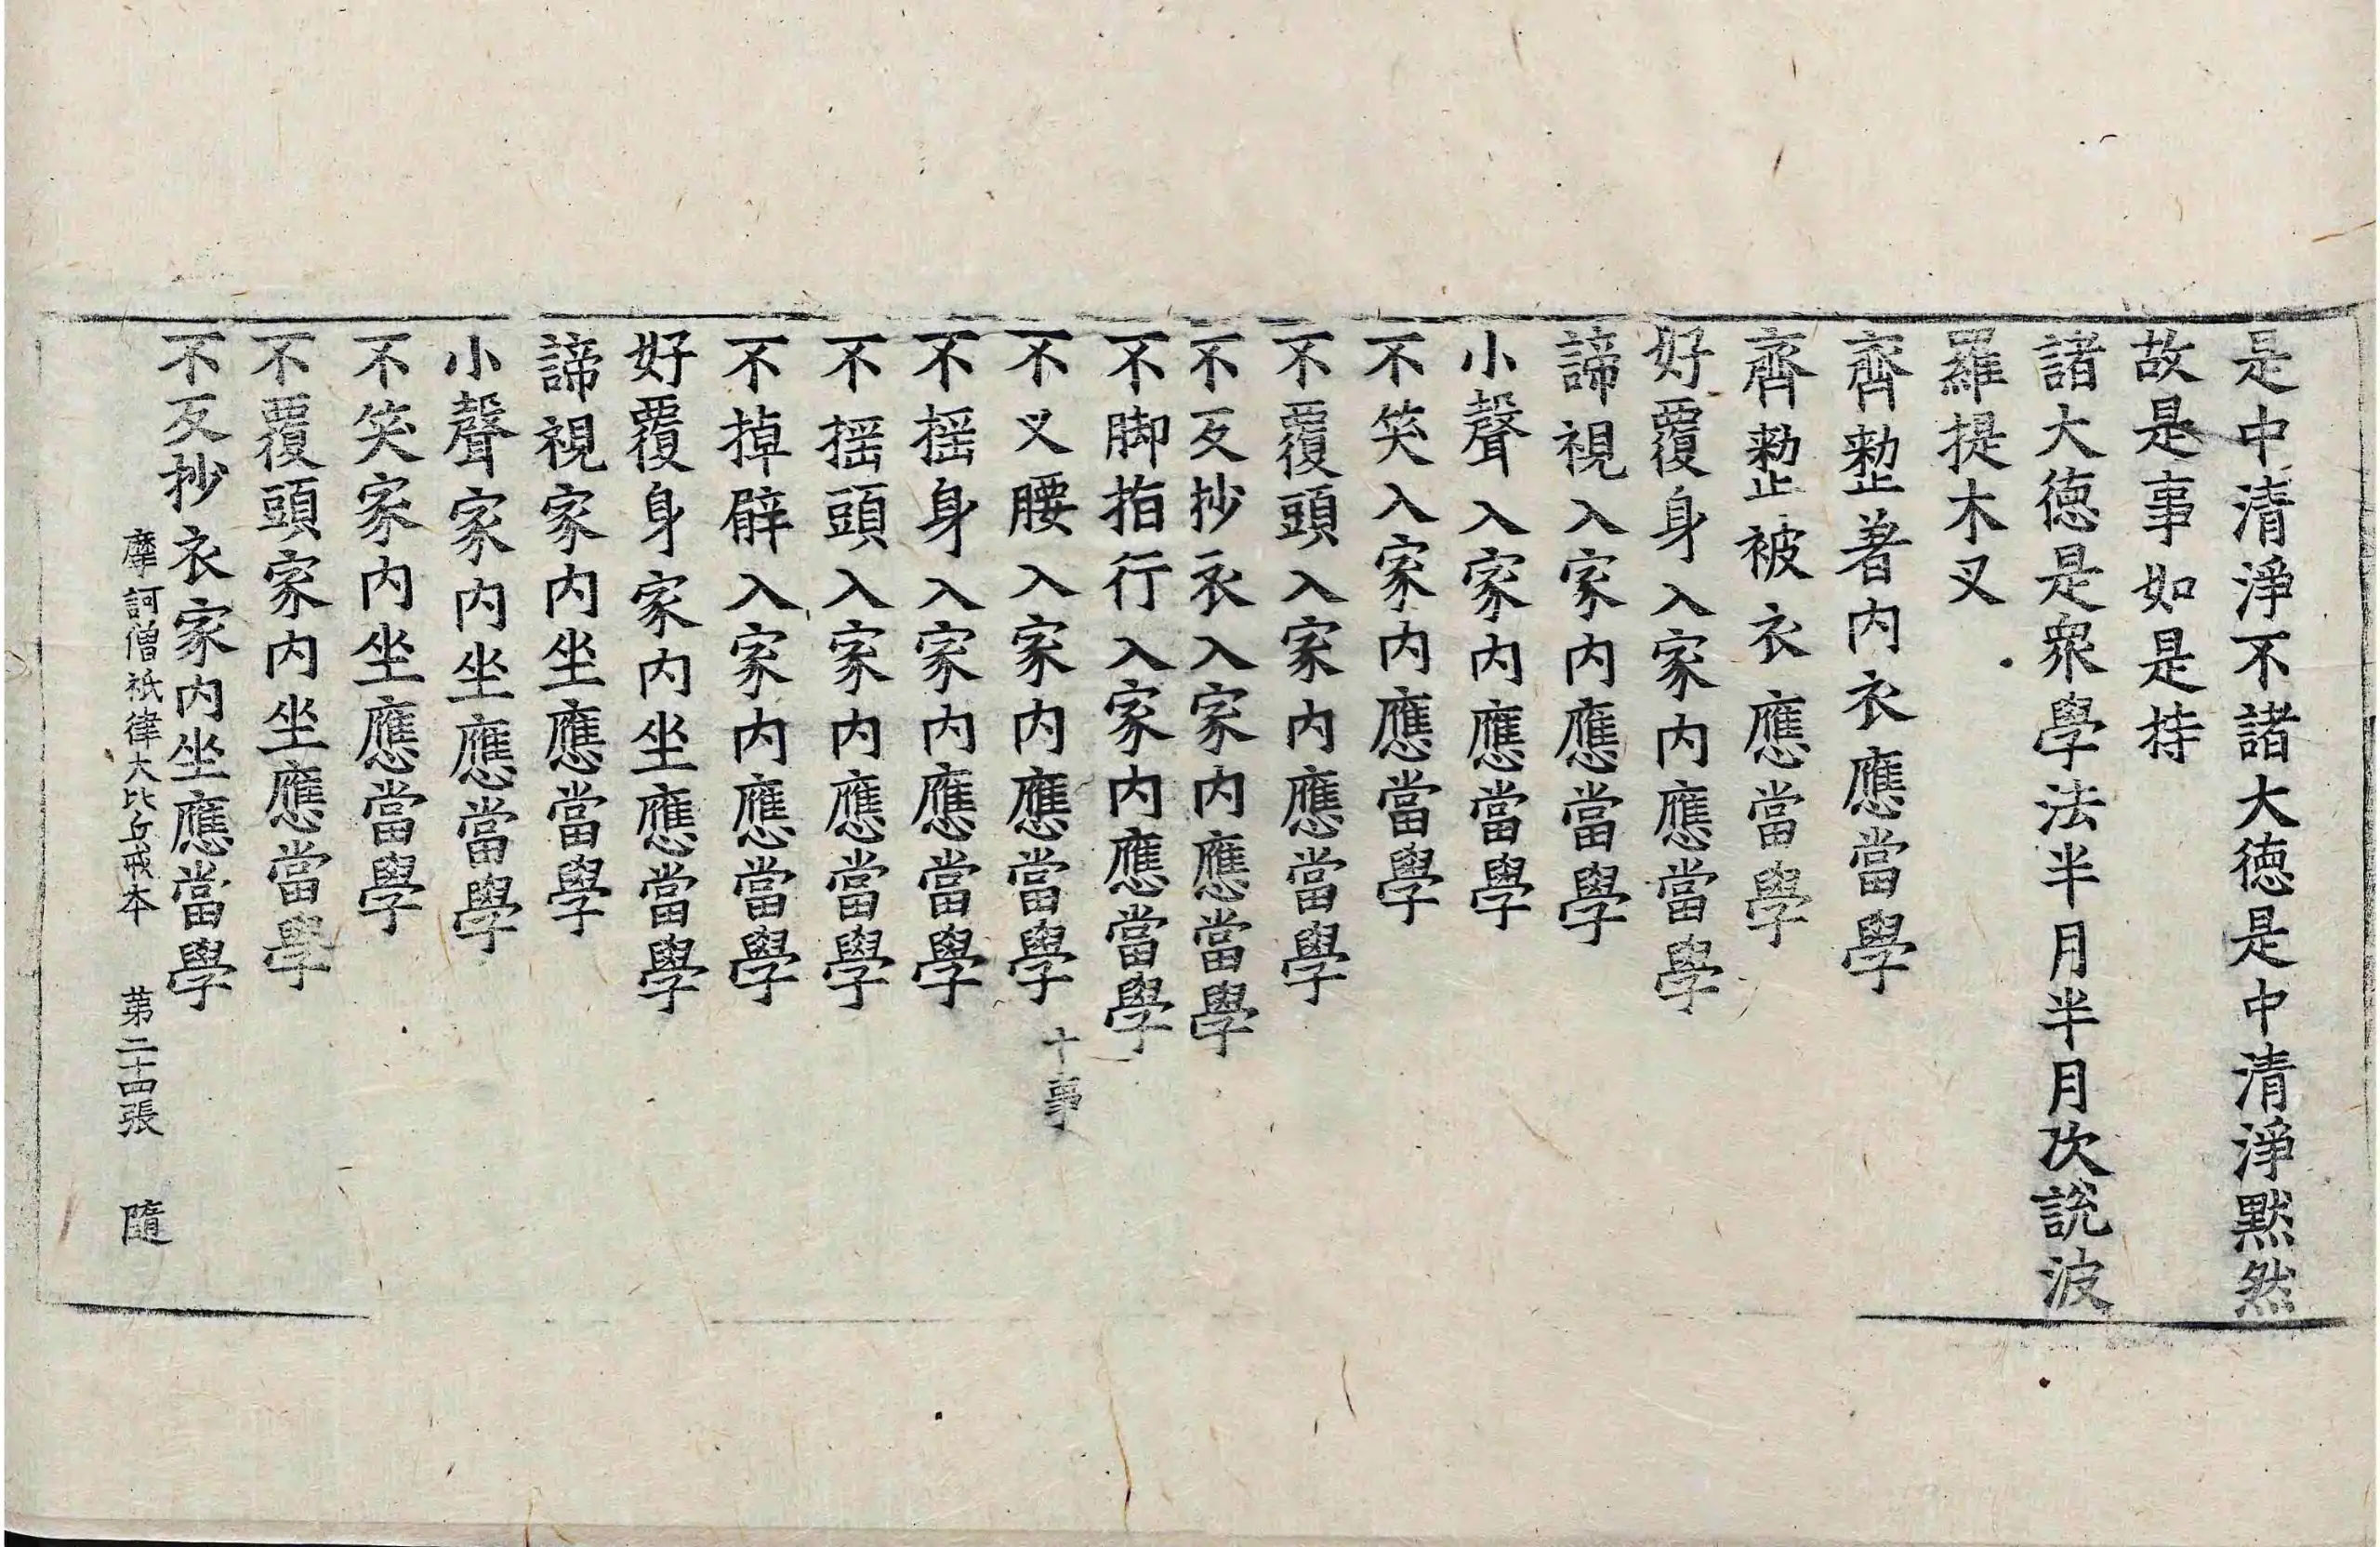 是中清淨不諸大德是中清淨默然
故是事如是持
諸大德是衆學法半月半月次說波
羅提木叉
齊整著內衣應當學
齊整被衣應當學
好覆身入家內應當學
諦視入家內應當學
小聲入家內應當學
不笑入家內應當學
不覆頭入家內應當學
不反抄衣入家內應當學
不脚指行入家內應當學
不叉腰入家內應當學 十事
不搖身入家內應當學
不搖頭入家內應當學
不掉臂入家內應當學
好覆身家內坐應當學
諦視家內坐應當學
小聲家內坐應當學
不笑家內坐應當學
不覆頭家內坐應當學
不反抄衣家內坐應當學
摩訶僧祇律大比丘戒本 第二十四張 隨